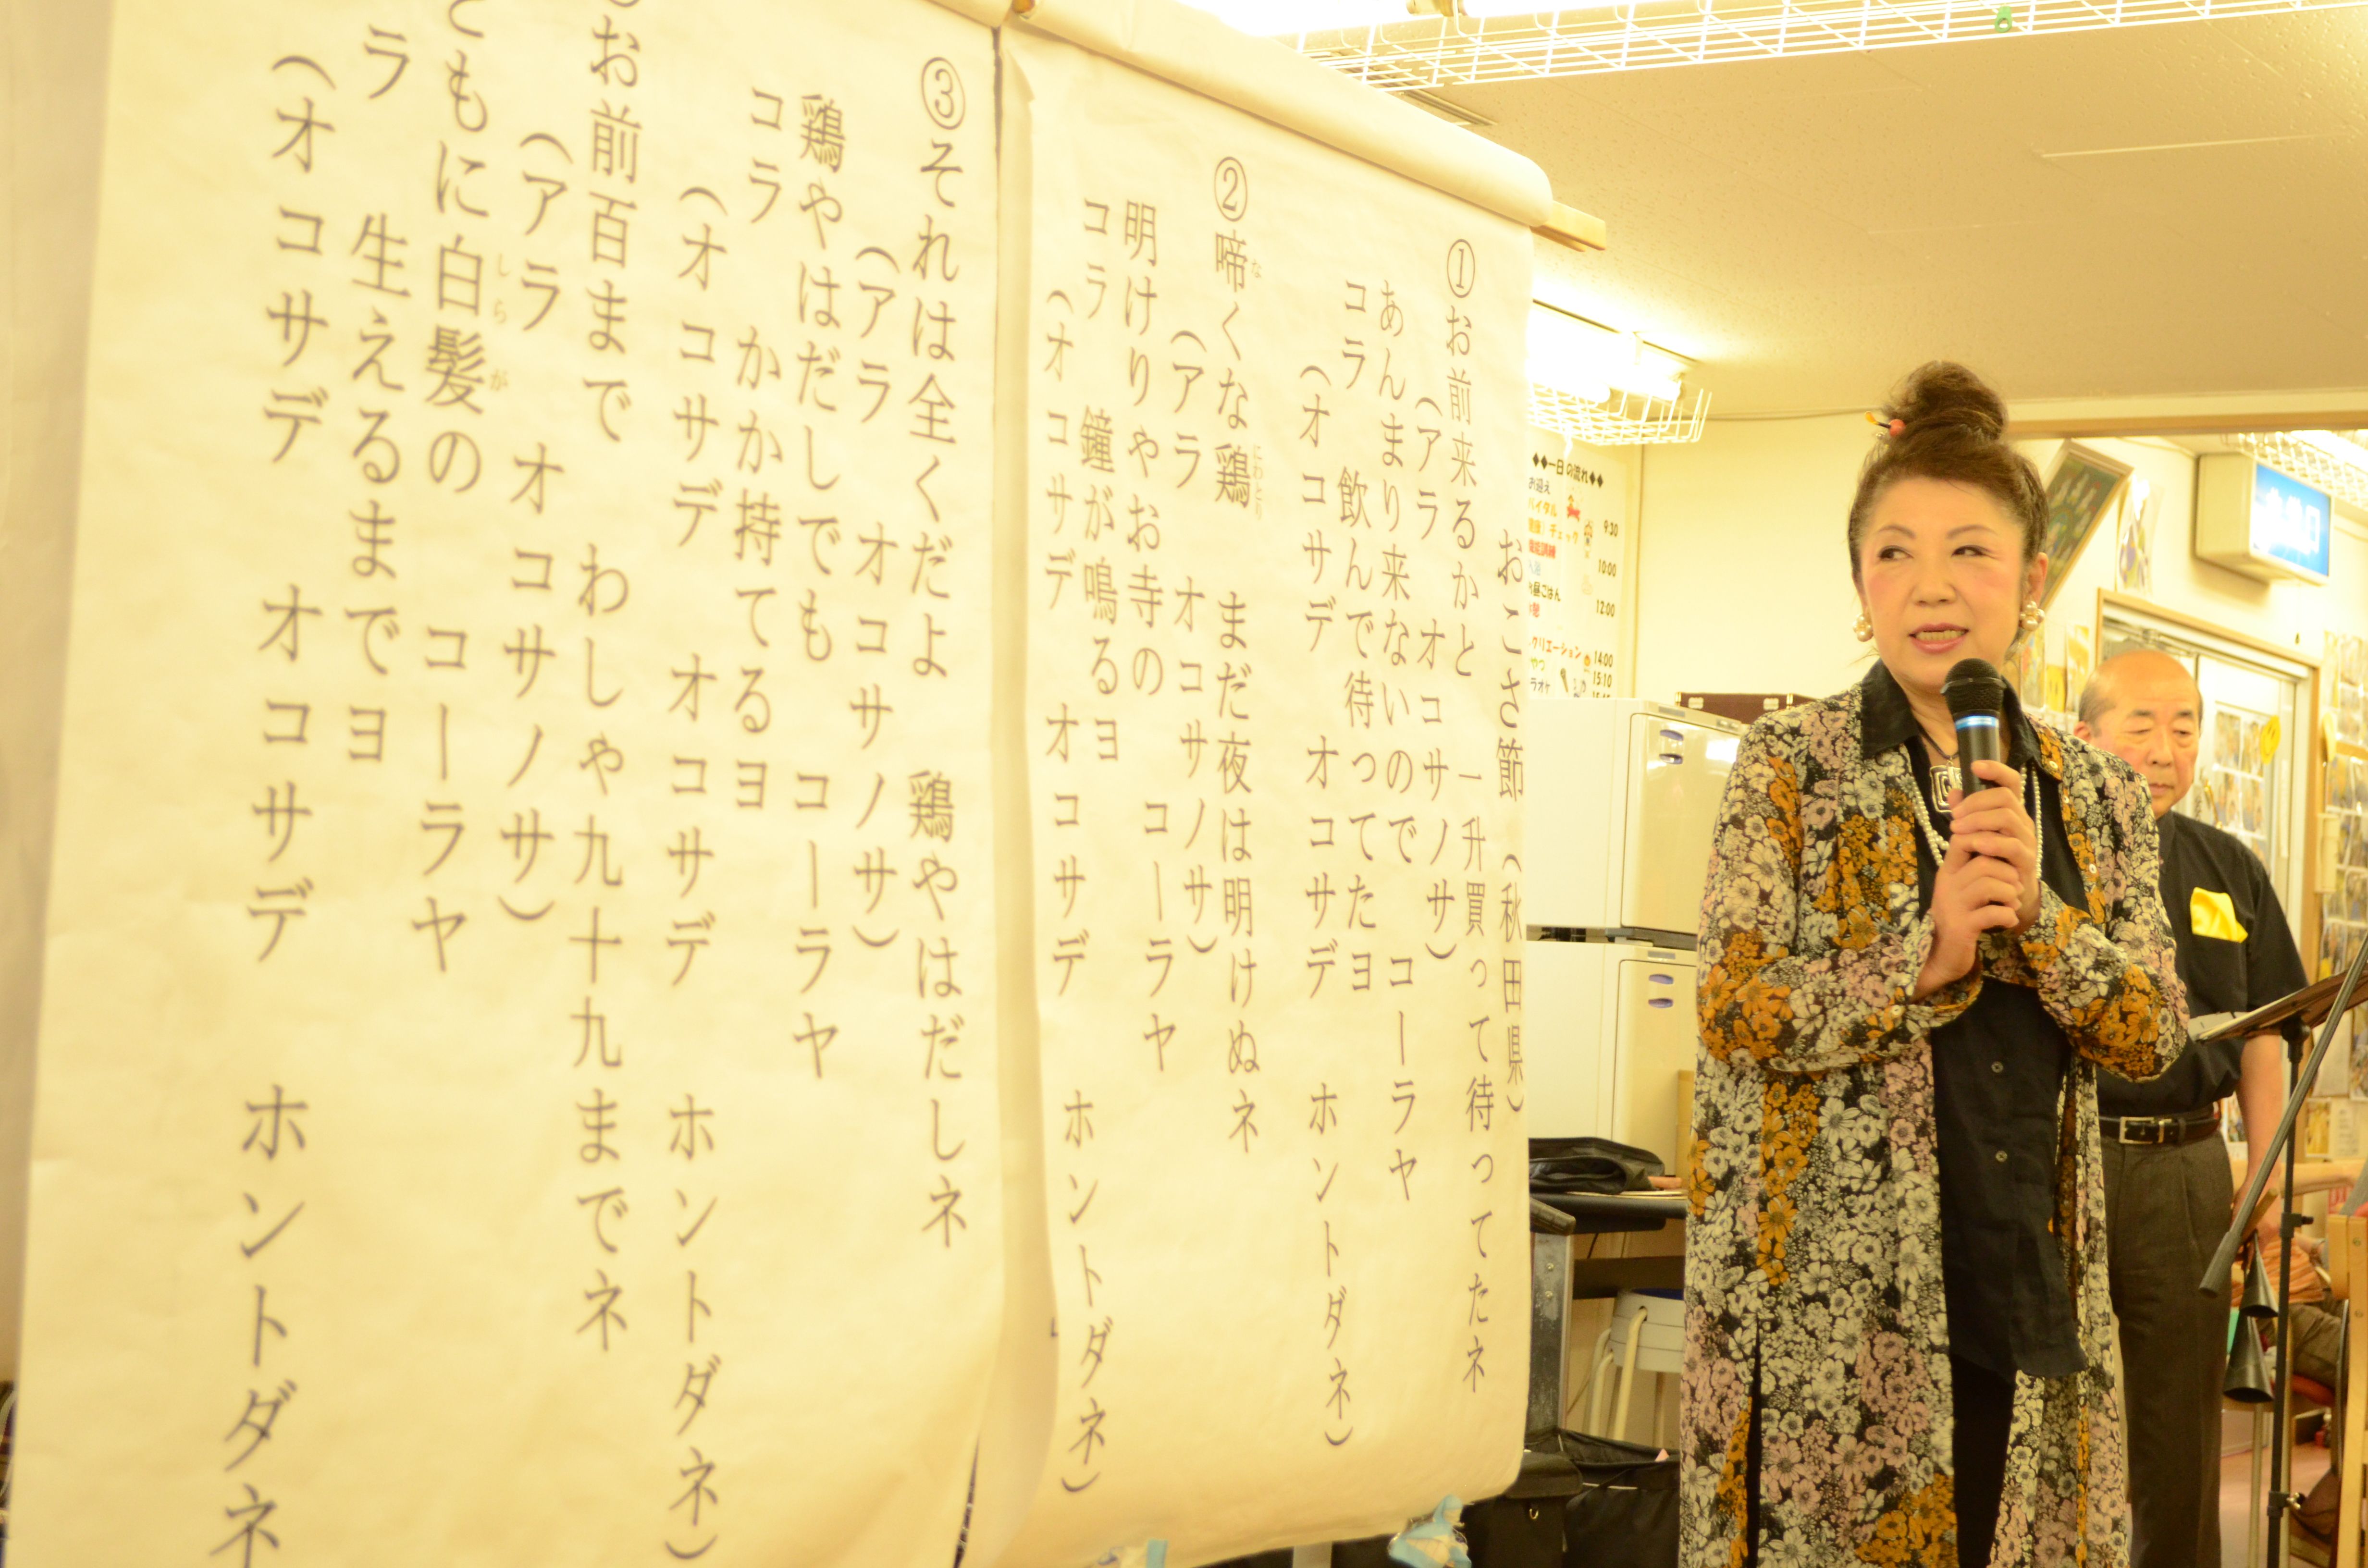 おこさ節 (秋田県)
①お前来るかと 一升買って待ってたネ
(アラ オコサノサ)
あんまり来ないので コーラヤ
コラ 飲んで待ってたヨ
(オコサデ オコサデ ホントダネ)
②啼くな鶏 まだ夜は明けぬネ
な
にわとり
(アラ オコサノサ)
明けりゃお寺の コーラヤ
コラ 鐘が鳴るヨ
(オコサデ オコサデ ホントダネ)
③それは全くだよ 鶏やはだしネ
(アラ オコサノサ)
鶏やはだしでも コーラヤ
コラ かか持てるヨ
(オコサデ オコサデ ホントダネ)
お前百まで わしゃ九十九までネ
(アラ オコサノサ)
ともに白髪の コーラヤ
しらが
ラ 生えるまでヨ
(オコサデ オコサデ ホントダネ
◆◆一日の流れ◆◆
お迎え
バイタル 9:30
チェック
10:00
お昼ごはん 12:00
クリエーション 14:00
15:10